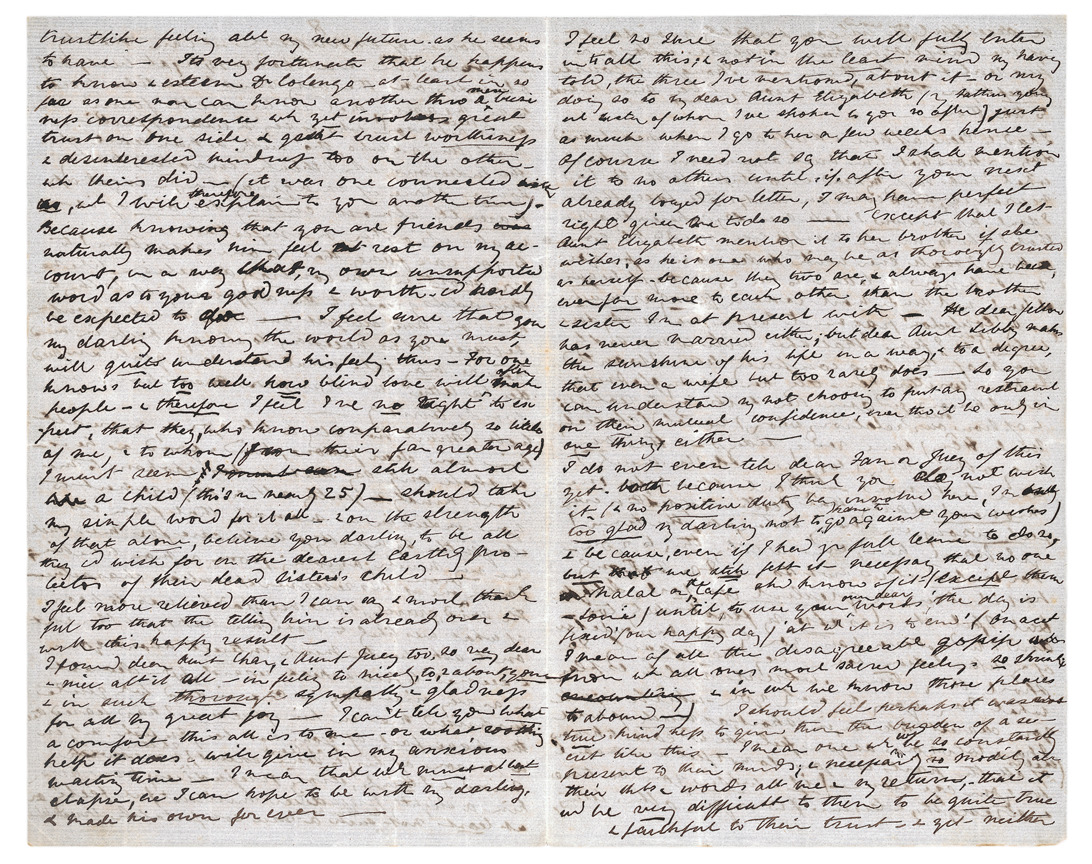 trustlike feeling abt my new future as he seems
to have — Its very fortunate that he happens
to know & esteem Dr Colenso - at least in so
far as one man can know another thro' a mere busi
ness correspondence wh yet involves great
trust on one side & great trust worthiness
& disinterested kindness too on the other
wh theirs did — (it was one connected
, but I will therefore explain to you another time) -
Because knowing that you are friends
naturally makes him feel at rest on my ac-
count, in a way that my own unsupported
word as to your goodness & worth - cd hardly
be expected to do — I feel sure that you
my darling knowing the world as you must
will quite understand his feeling thus - For one
knows but too well how blind love will often make
people - & therefore I feel I've no right to ex
pect, that they, who know comparatively so little
of me, & to whom (from their far greater age)
I must seem still almost
a child (tho' I'm nearly 25) — should take
my simple word for it all - & on the strength
of that alone, believe you darling, to be all
they'd wish for in the dearest Earthly pro-
tector of their dead sister's child —
I feel more relieved than I can say & most thank
ful too that the telling him is already over &
with this happy result —
I found dear Aunt Chary & Aunt Juey too, so very dear
& nice abt it all - in feeling so nicely too, about you
& in such thorough sympathy & gladness
for all my great joy — I can't tell you what
a comfort this all is to me - or what soothing
help it does - & will give in my anxious
waiting time — I mean that wh must at least
elapse, ere I can hope to be with my darling,
& made his own for ever —
I feel so sure that you will fully enter
into all this, & not in the least mind my having
told, the three I've mentioned, about it - or my
doing so to my dear Aunt Elizabeth (
sister of whom I've spoken to you so often) just
as much when I go to her a few weeks hence -
Of course I need not say that I shall mention
it to no others until, if, after your next
already longed for letter, I may have perfect
right given me to do so — Except that I let
Aunt Elizabeth mention it to her brother if she
wishes, as he is one who may be as thoroughly trusted
as herself - because they two are, & always have been,
even far more to each other than the brother
& sister I'm at present with — He dear fellow
has never married either, but dear Aunt Libby makes
the sunshine of his life in a way, & to a degree,
that even a wife but too rarely does — So you
can understand my not choosing to put any restraint
on their mutual confidence, even tho' it be only in
one thing either —
I do not even tell dear Fan or Juey of this
yet - both because I think you do not wish
it (& no positive duty being involved here, I'm only
too glad my darling not to have to go against your wishes)
& because, even if I had yr full leave to do so,
but we still felt it necessary that no one
in Natal or the Cape shd know of it (except them
- selves) until, to use your own dear words, 'the day is
fixed' (our happy day) , on acct
I mean of all the disagreeable gossip
from wh all ones most sacred feelings so shrink
& in wh we know those places
to abound —) I should feel perhaps it was
true kindness to give them the burden of a se
cret like this - I mean one wh wd be so constantly
present to their minds, & necessarily so modify all
their acts & words all we & my return, that it
wd be very difficult to them to be quite true
& faithful to their trust - & yet neither